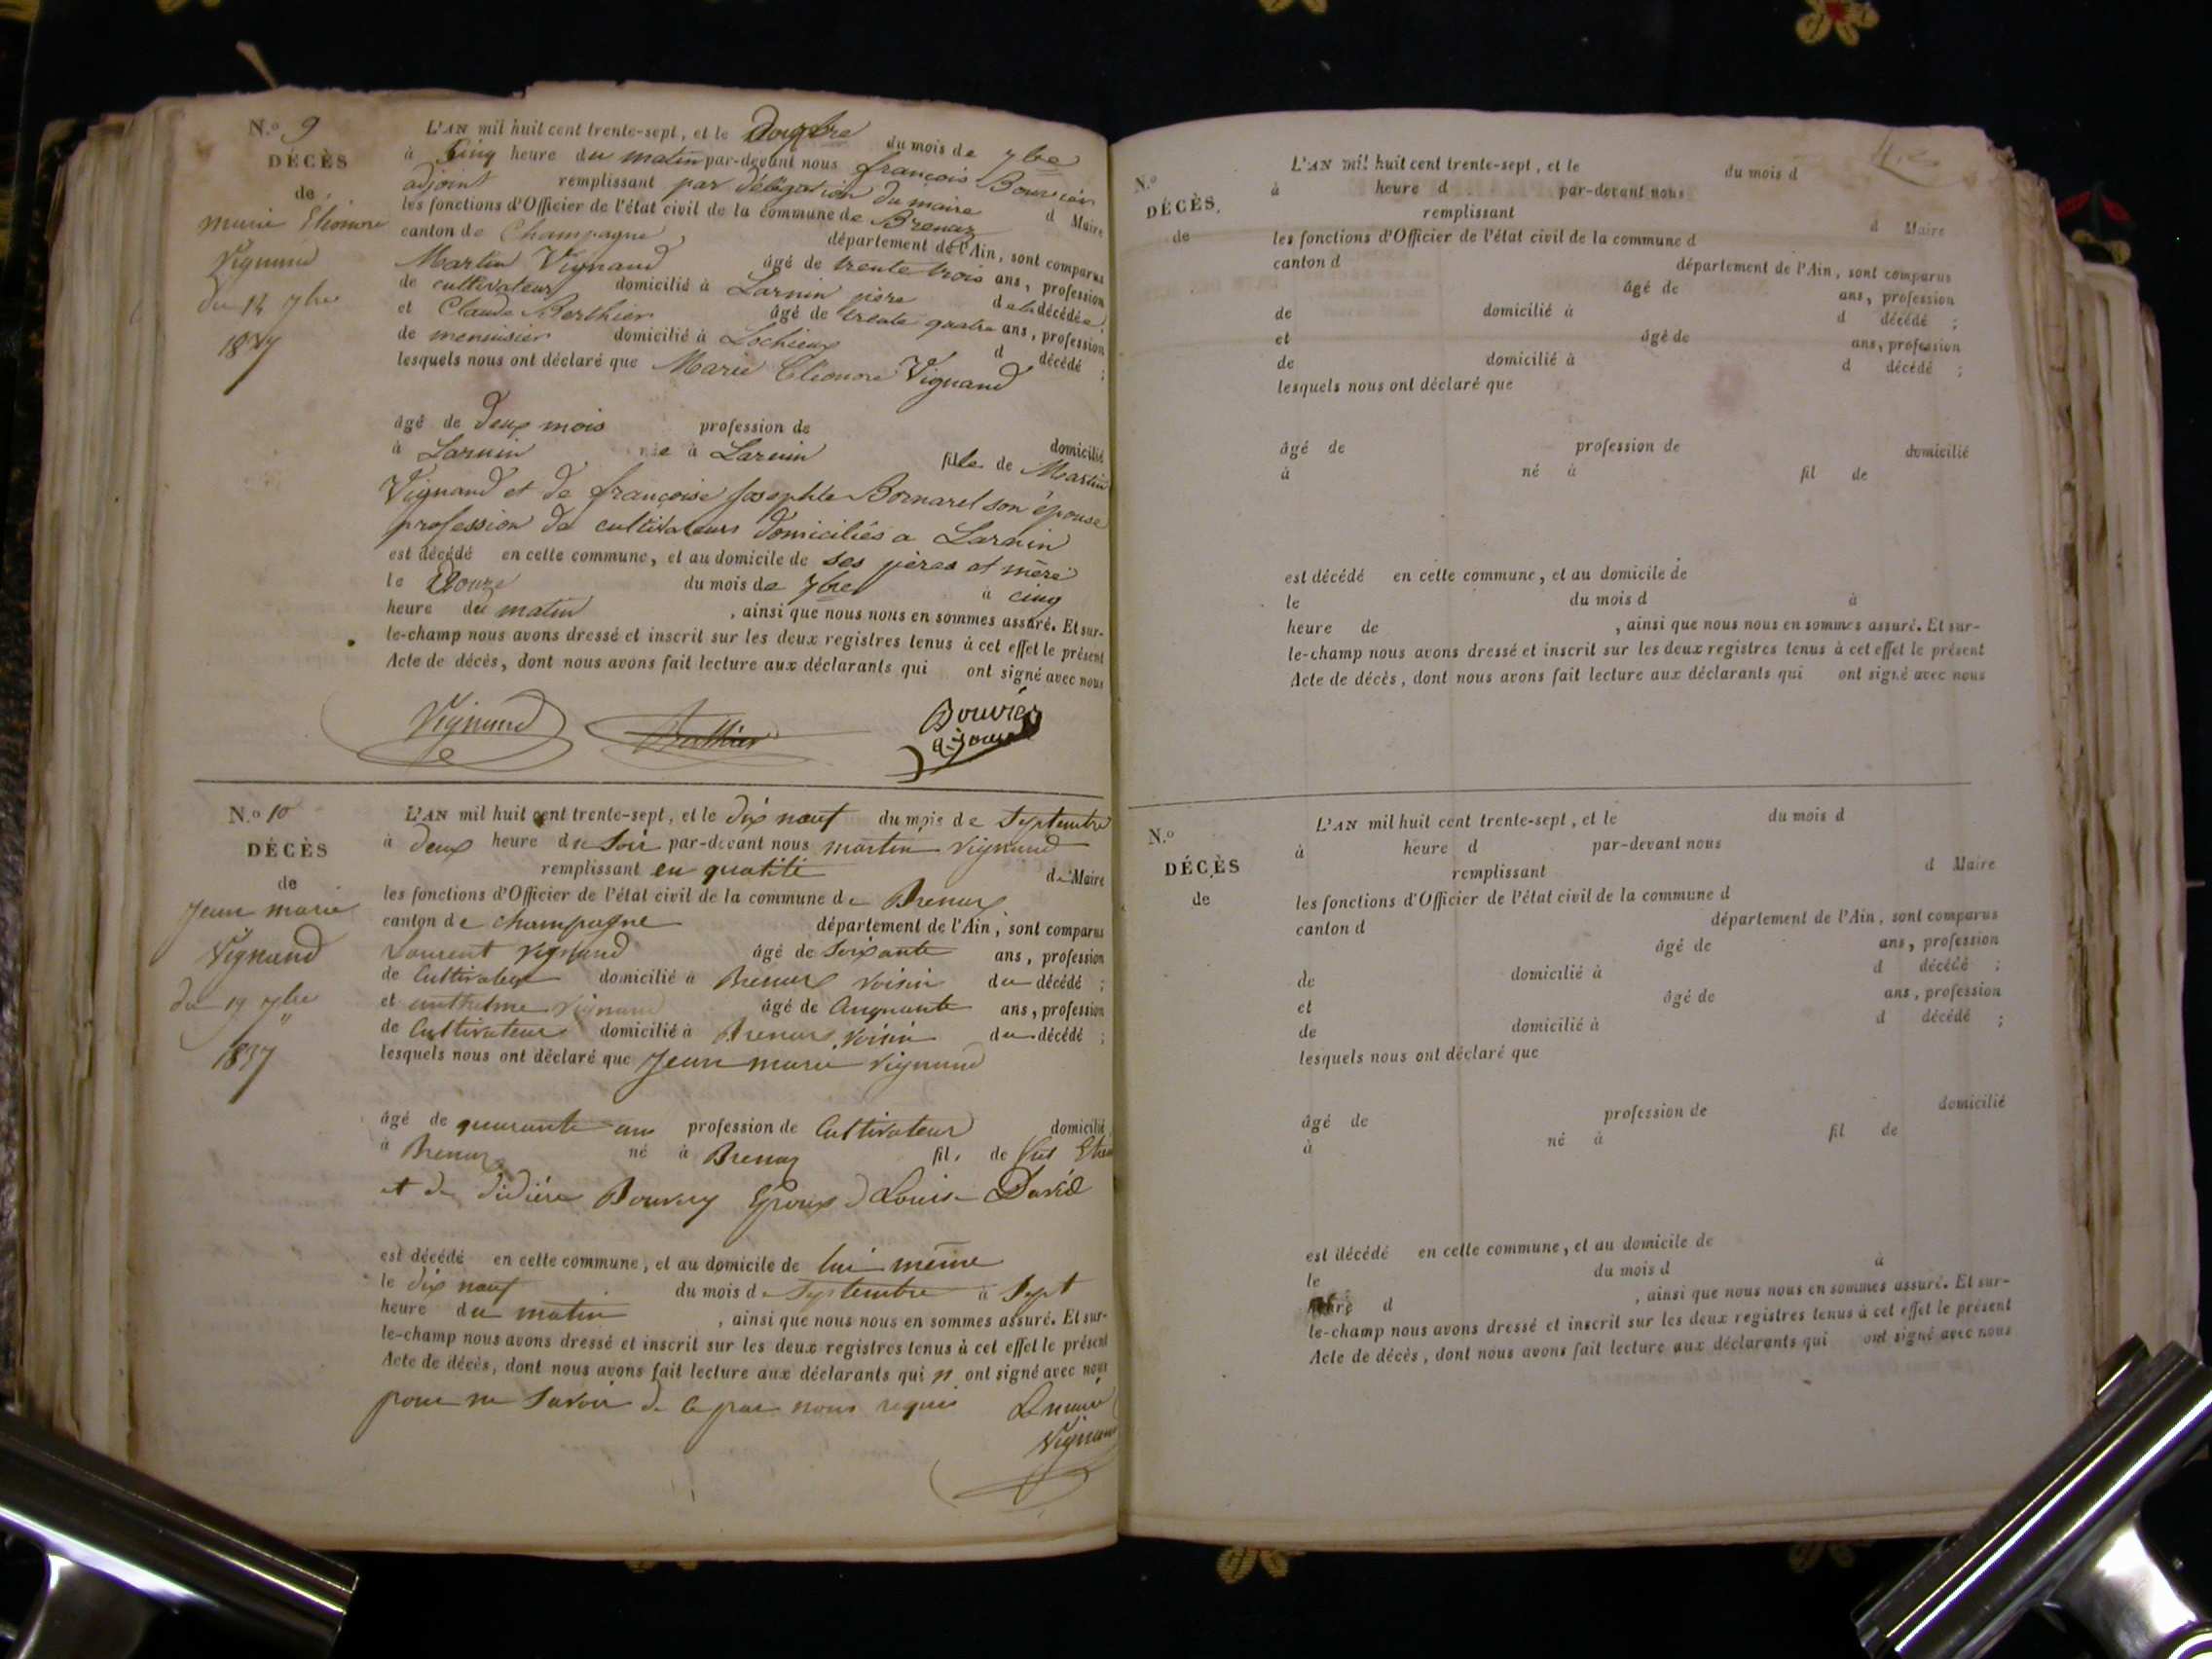 N.o 9
DÉCÈS
de
marie Eléonore
Vignand
du 12 7bre
1837
L'AN mil huit cent trente-sept, et le Douze du mois de 7bre
à Cinq heure du matin par-devant nous françois Bouvier
adjoint remplissant par délégation du maire d Maire
les fonctions d'Officier de l'état civil de la commune de Brenaz
canton de Champagne département de l'Ain, sont comparus
Martin Vignand âgé de trente trois ans, profession
de cultivateur domicilié à Larnin père de la décédée;
et Claude Berthier âgé de trente quatre ans, profession
de menuisier domicilié à Lochieux d décédé ;
lesquels nous ont déclaré que Marie Eléonore Vignand
âgé de deux mois profession de domicilié
à Larnin née à Larnin fille de Martin
Vignand et de françoise Josephte Bornarel son épouse
profession de cultivateurs domiciliés a Larnin
est décédé en cette commune, et au domicile de ses pères et mère
le Douze du mois de 7bre à cinq
heure du matin , ainsi que nous nous en sommes assuré. Et sur-
le-champ nous avons dressé et inscrit sur les deux registres tenus à cet effet le présent
Acte de décès, dont nous avons fait lecture aux déclarants qui ont signé avec nous
Vignand Berthier Bouvier
adjoint
N.o 10
DÉCÈS
de
Jean marie
Vignand
du 19 7bre
1837
L'AN mil huit cent trente-sept, et le dix neuf du mois de Septembre
à deux heure du Soir par-devant nous martin Vignand
remplissant en qualité de Maire
les fonctions d'Officier de l'état civil de la commune de Brenaz
canton de champagne département de l'Ain, sont comparus
Laurent Vignand âgé de Soixante ans, profession
de Cultivateur domicilié à Brenaz voisin du décédé ;
et anthelme Vignand âgé de Cinquante ans, profession
de Cultivateur domicilié à Brenaz voisin du décédé ;
lesquels nous ont déclaré que Jean marie Vignand
âgé de quarante ans profession de Cultivateur domicilié
à Brenaz né à Brenaz fil de
et de didière Bouvery Epoux d Louise David
est décédé en cette commune, et au domicile de lui même
le dix neuf du mois de Septembre à Sept
heure du matin , ainsi que nous nous en sommes assuré. Et sur-
le-champ nous avons dressé et inscrit sur les deux registres tenus à cet effet le présent
Acte de décès, dont nous avons fait lecture aux déclarants qui n ont signé avec nous
pour ne Savoir de ce par nous requis
Vignand
N.o
DÉCÈS.
de
L'AN mil huit cent trente-sept, et le du mois d
à heure d par-devant nous
remplissant d Maire
les fonctions d'Officier de l'état civil de la commune d
canton d département de l'Ain, sont comparus
âgé de ans, profession
de domicilié à d décédé ;
et âgé de ans, profession
de domicilié à d décédé ;
lesquels nous ont déclaré que
âgé de profession de domicilié
à né à fil de
est décédé en cette commune, et au domicile de
le du mois d à
heure de , ainsi que nous nous en sommes assuré. Et sur-
le-champ nous avons dressé et inscrit sur les deux registres tenus à cet effet le présent
Acte de décès, dont nous avons fait lecture aux déclarants qui ont signé avec nous
N.o
DÉCÈS
de
L'AN mil huit cent trente-sept, et le du mois d
à heure d par-devant nous
remplissant d Maire
les fonctions d'Officier de l'état civil de la commune d
canton d département de l'Ain, sont comparus
âgé de ans, profession
de domicilié à d décédé ;
et âgé de ans, profession
de domicilié à d décédé ;
lesquels nous ont déclaré que
âgé de profession de domicilié
à né à fil de
est décédé en cette commune, et au domicile de
le du mois d à
heure d , ainsi que nous nous en sommes assuré. Et sur-
le-champ nous avons dressé et inscrit sur les deux registres tenus à cet effet le présent
Acte de décès, dont nous avons fait lecture aux déclarants qui ont signé avec nous